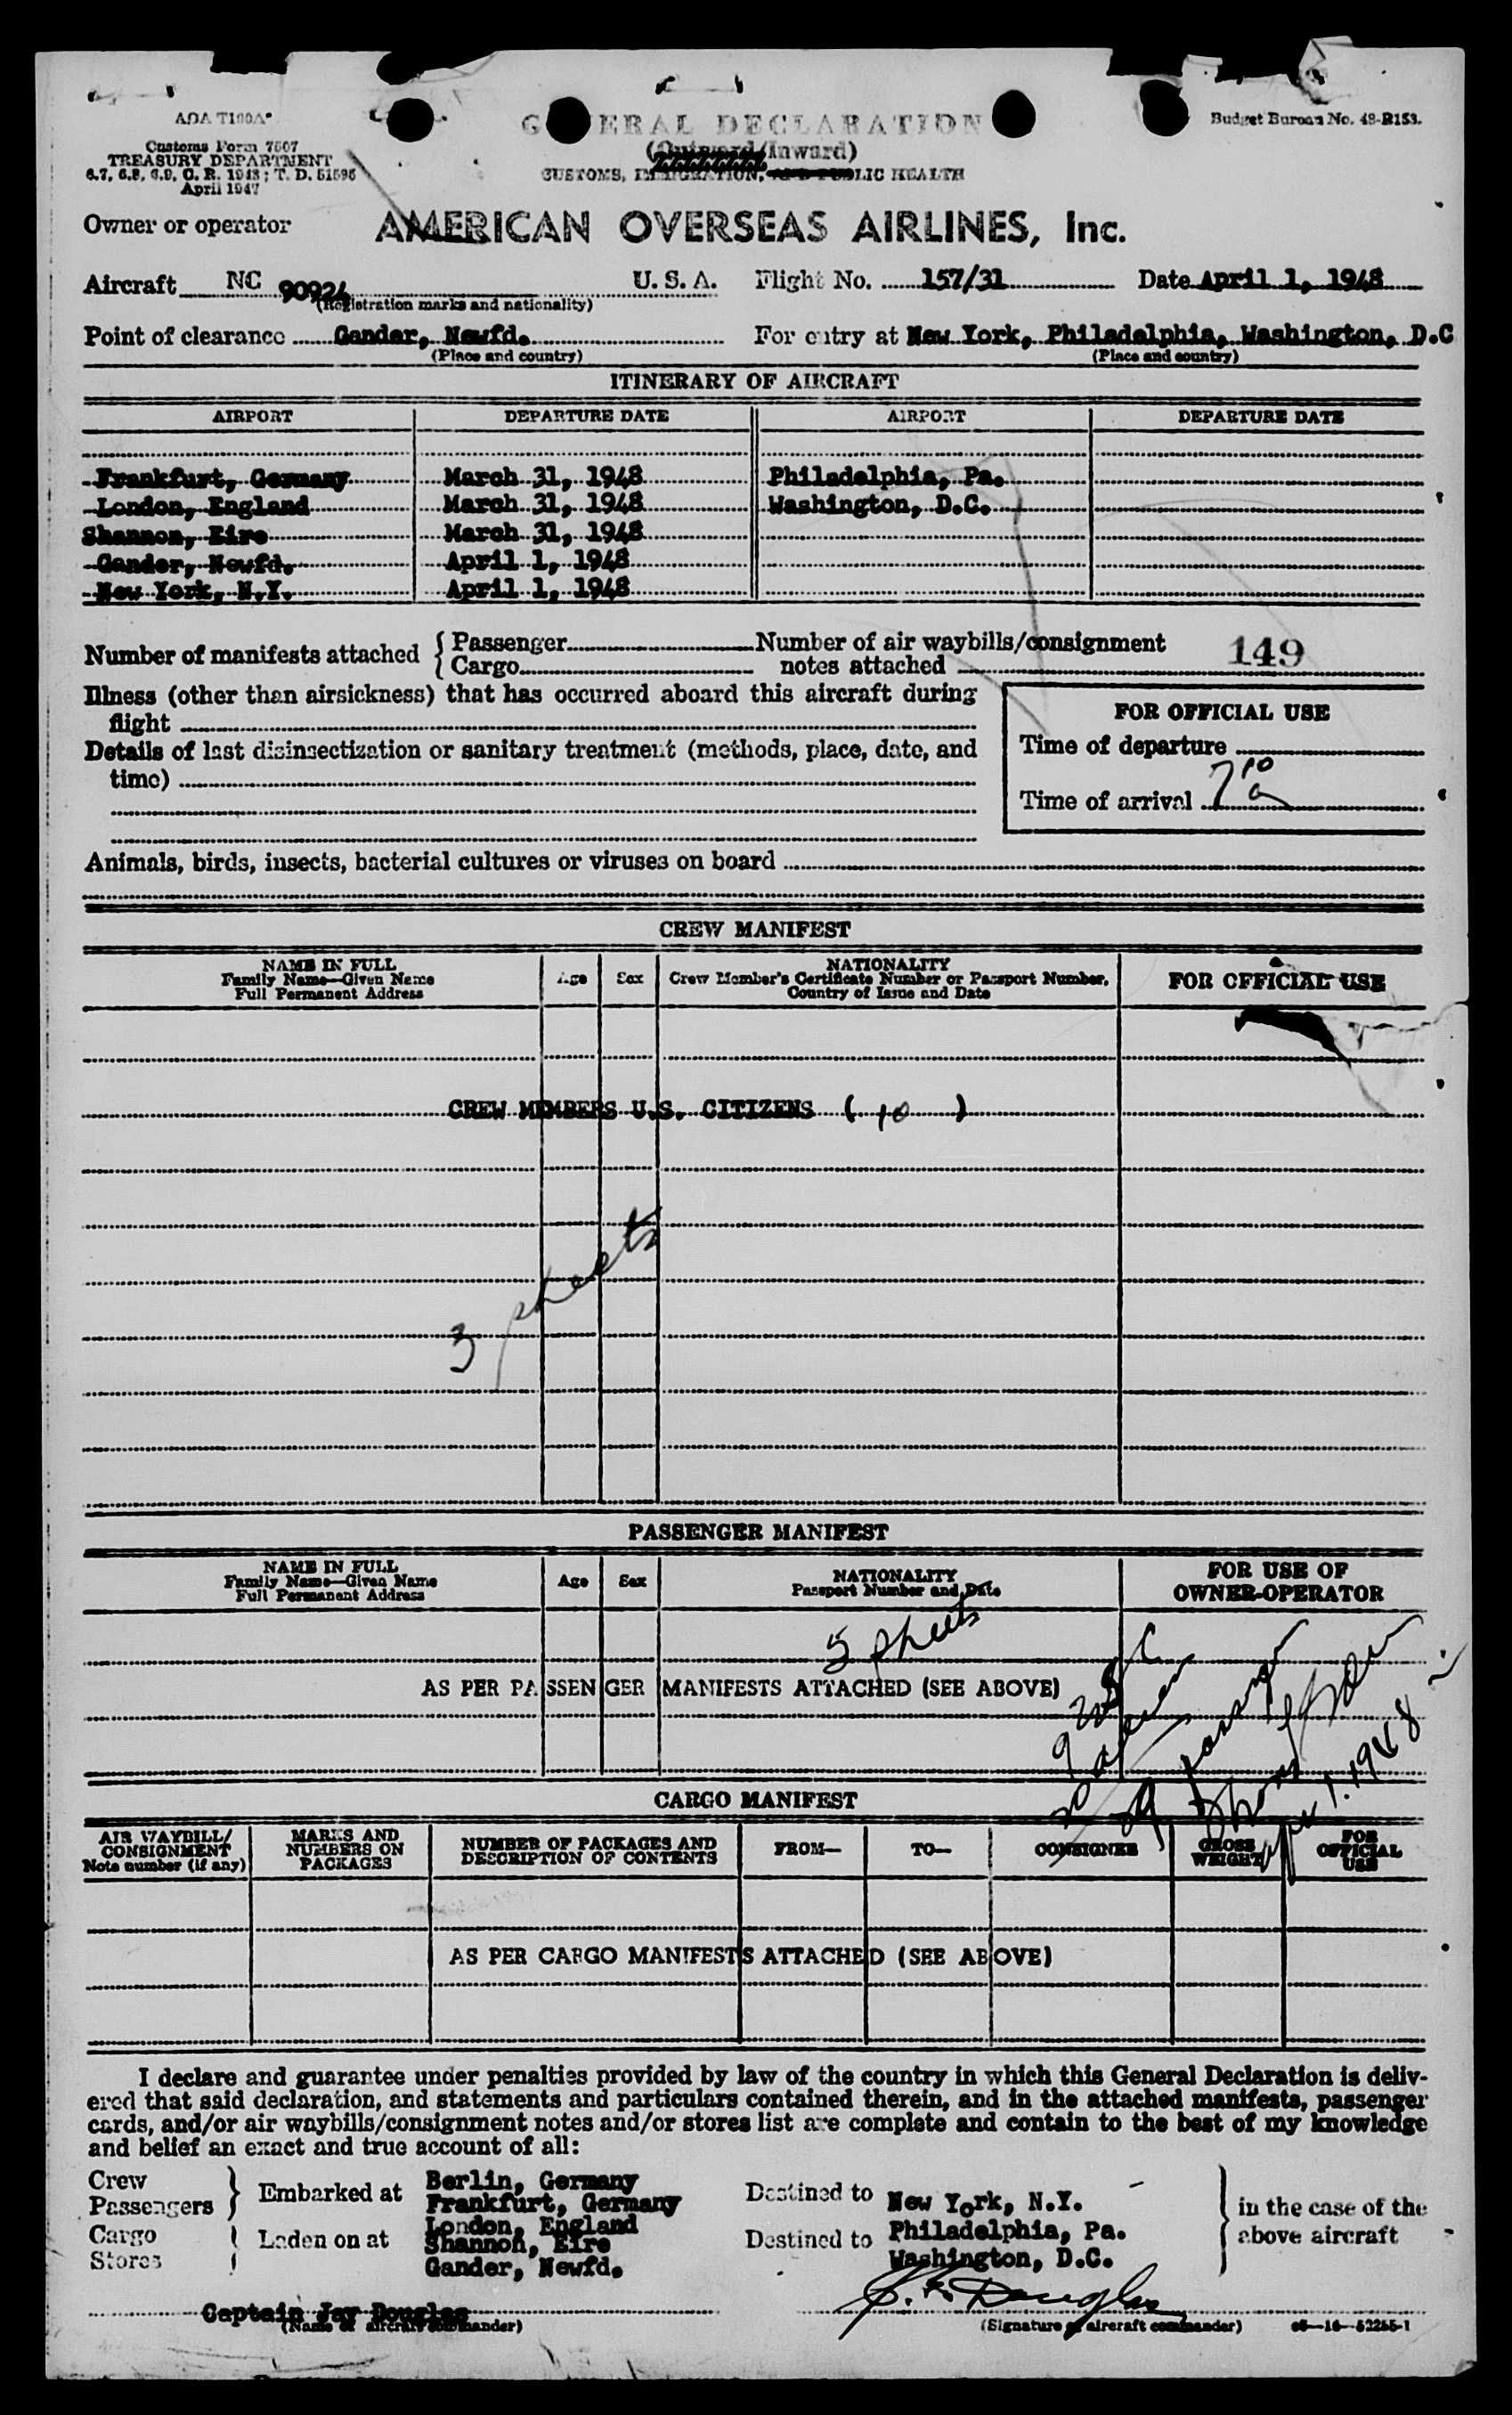 AOA T100A
GENERAL DECLARATION
Budget Bureau No. 48-R153.
Customs Form 7507
(Outward/Inward)
TREASURY DEPARTMENT
CUSTOMS, IMMIGRATION, AND PUBLIC HEALTH
6.7, 6.8, 6.9, C. R. 1943; T. D. 51596
April 1947
Owner or operator AMERICAN OVERSEAS AIRLINES, Inc.
Aircraft NC 90924 U. S. A. Flight No. 157/31 Date April 1, 1948
(Registration marks and nationality)
Point of clearance Gander, Newfd. For entry at New York, Philadelphia, Washington, D.C
(Place and country) (Place and country)
ITINERARY OF AIRCRAFT
AIRPORT DEPARTURE DATE AIRPORT DEPARTURE DATE
Frankfurt, Germany March 31, 1948 Philadelphia, Pa.
London, England March 31, 1948 Washington, D.C.
Shannon, Eire March 31, 1948
Gander, Newfd. April 1, 1948
New York, N.Y. April 1, 1948
Number of manifests attached { Passenger Number of air waybills/consignment 149
Cargo notes attached
Illness (other than airsickness) that has occurred aboard this aircraft during
flight
FOR OFFICIAL USE
Details of last disinsectization or sanitary treatment (methods, place, date, and
time)
Time of departure
Time of arrival 7 10 a
Animals, birds, insects, bacterial cultures or viruses on board
CREW MANIFEST
NAME IN FULL
Family Name—Given Name
Full Permanent Address
Age Sex
NATIONALITY
Crew Member's Certificate Number or Passport Number,
Country of Issue and Date
FOR OFFICIAL USE
CREW MEMBERS U.S. CITIZENS ( 10 )
3 sheets
PASSENGER MANIFEST
NAME IN FULL
Family Name—Given Name
Full Permanent Address
Age Sex
NATIONALITY
Passport Number and Date
FOR USE OF
OWNER-OPERATOR
5 sheets
AS PER PASSENGER MANIFESTS ATTACHED (SEE ABOVE)
9 USC
20 alien
29
1. 1948
CARGO MANIFEST
AIR WAYBILL/
CONSIGNMENT
Note number (if any)
MARKS AND
NUMBERS ON
PACKAGES
NUMBER OF PACKAGES AND
DESCRIPTION OF CONTENTS
FROM— TO— CONSIGNEE
GROSS
WEIGHT
FOR
OFFICIAL
USE
AS PER CARGO MANIFESTS ATTACHED (SEE ABOVE)
I declare and guarantee under penalties provided by law of the country in which this General Declaration is deliv-
ered that said declaration, and statements and particulars contained therein, and in the attached manifests, passenger
cards, and/or air waybills/consignment notes and/or stores list are complete and contain to the best of my knowledge
and belief an exact and true account of all:
Crew
Passengers } Embarked at
Cargo
Stores } Laden on at
Berlin, Germany
Frankfurt, Germany
London, England
Shannon, Eire
Gander, Newfd.
Destined to New York, N.Y.
Destined to Philadelphia, Pa.
Washington, D.C.
in the case of the
above aircraft
Captain Jay Douglas
(Name of aircraft commander)
Douglas
(Signature of aircraft commander) 16—52255-1